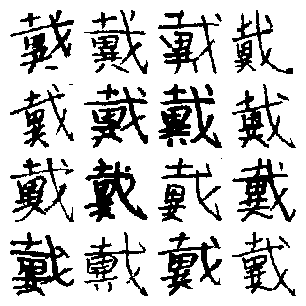 戴戴戴戴
戴戴戴戴
戴戴戴戴
戴戴戴戴